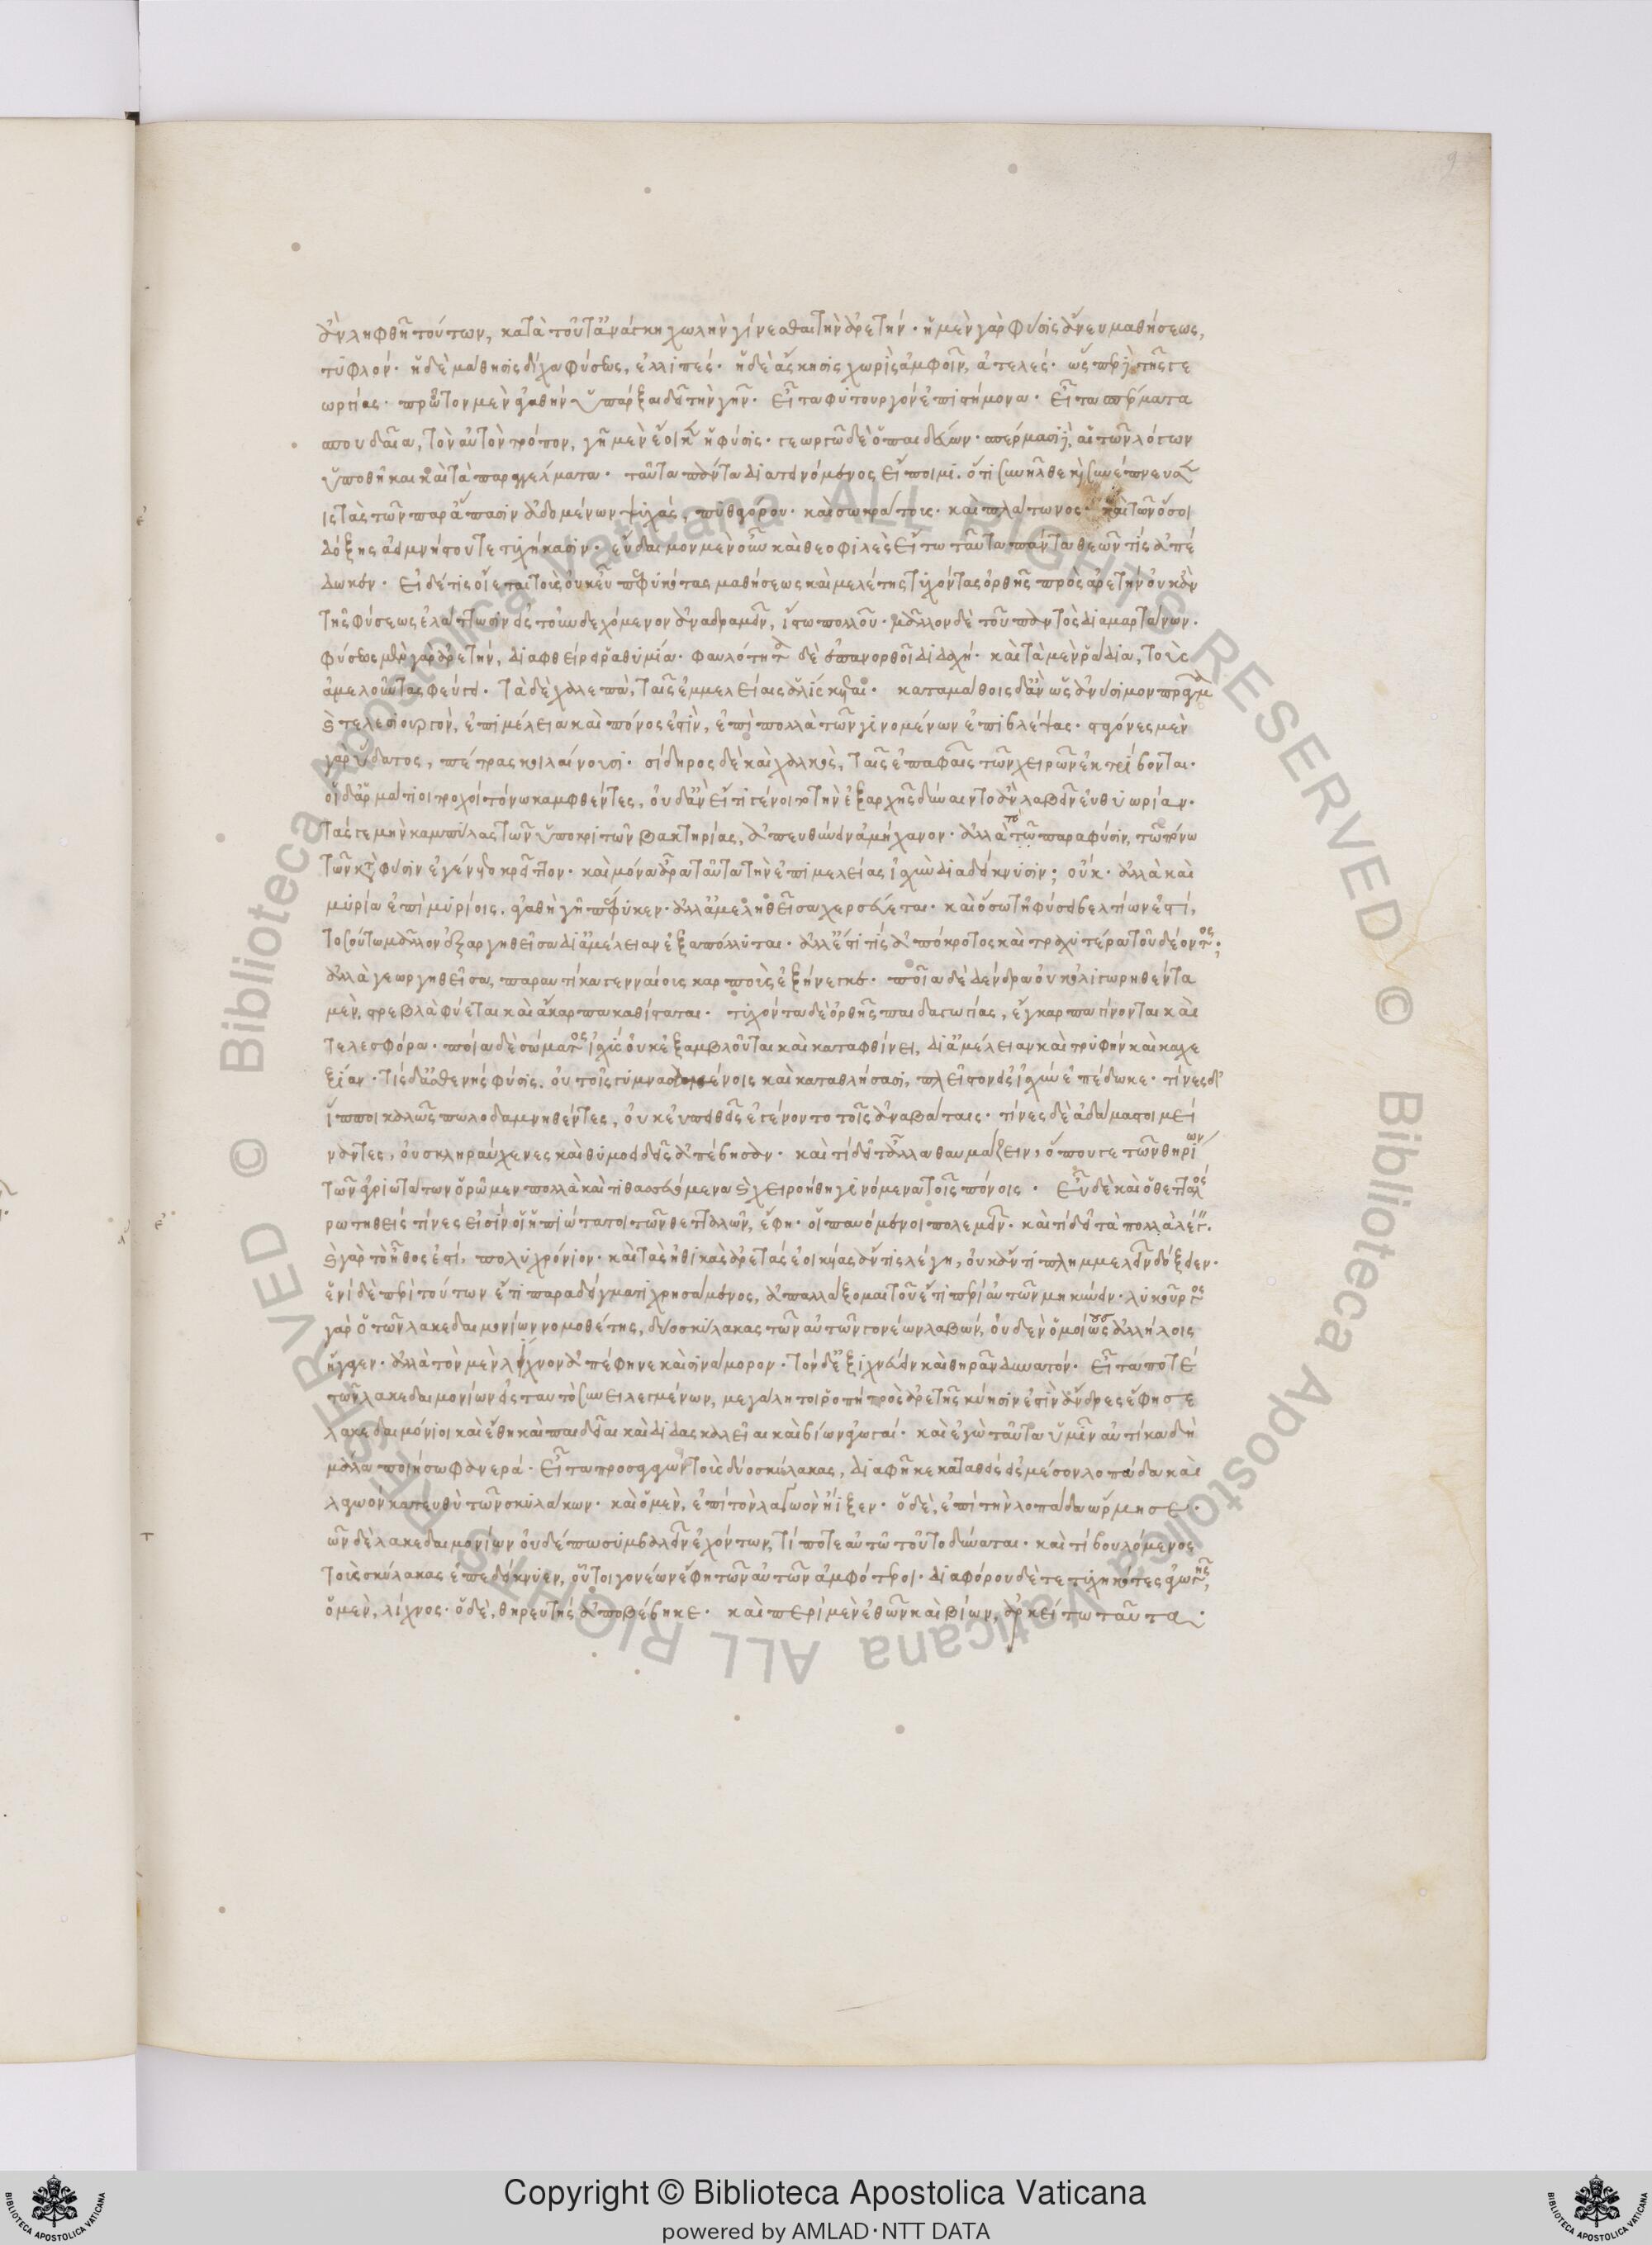 ἂν ληφθῆ τούτων, κατὰ τοῦτ' ἀνάγκη χωλὴν γίνεσθαι τὴν ἀρετήν· ἡ μὲν γὰρ φύσις ἄνευ μαθήσεως,
τυφλόν· ἡ δὲ μάθησις δίχα φύσεως, ἐλλιπές· ἡ δὲ ἄσκησις χωρὶς ἀμφοῖν, ἀτελές· ὥσπερ ἐπὶ τῆς γε
ωργίας· πρῶτον μὲν ἀγαθὴν ὑπάρξαι δεῖ τὴν γῆν· εἶτα φυτουργὸν ἐπιστήμονα· εἶτα σπέρματα
σπουδαῖα, τὸν αὐτὸν τρόπον, γῆ μὲν ἔοικεν ἡ φύσις· γεωργῶ δὲ ὁ παιδεύων· σπέρμασι δὲ αἱ τῶν λόγων
ὑποθῆκαι καὶ τὰ παραγγέλματα· ταῦτα πάντα διατεινόμενος εἴποιμι. ὅτι συνῆλθε καὶ συνέπνευσεν
εἰς τὰς τῶν παρ' ἅπασιν ἀδομένων ψυχάς, πυθαγόρου· καὶ σωκράτους· καὶ πλάτωνος· καὶ τῶν ὅσοι
δόξης ἀειμνήστου τετυχήκασιν· εὔδαιμον μὲν οὖν καὶ θεοφιλὲς εἴ τω ταῦτα πάντα θεῶν τις ἀπέ
δωκεν· εἰ δέ τις οἴεται τοὺς οὐκ εὖ πεφυκότας μαθήσεως καὶ μελέτης τυχόντας ὀρθῆς πρὸς ἀρετὴν οὐκ ἂν
τῆς φύσεως ἐλάττωσιν εἰς τοὐνδεχόμενον ἀναδραμεῖν, ἴστω πολλοῦ· μᾶλλον δὲ τοῦ παντὸς διαμαρτάνων·
φύσεως μὲν γὰρ ἀρετὴν, διαφθείρει ῥαθυμία· φαυλότητα δὲ ἐπανορθοῖ διδαχή· καὶ τὰ μὲν ῥάδια, τοὺς
ἀμελοῦντας φεύγει· τὰ δὲ χαλεπὰ, ταῖς ἐμμελείαις ἁλίσκεται· καταμάθοις δ' ἂν ὡς ἀνύσιμον πρᾶγμα
καὶ τελεσιουργὸν, ἐπιμέλεια καὶ πόνος ἐστὶν, ἐπὶ πολλὰ τῶν γινομένων ἐπιβλέψας· σταγόνες μὲν
γὰρ ὕδατος, πέτρας κοιλαίνουσι· σίδηρος δὲ καὶ χαλκὸς, ταῖς ἐπαφαῖς τῶν χειρῶν ἐκτρίβονται·
οἱ δ' ἁρμάτιοι τροχοὶ πόνω καμφθέντες, οὐδ' ἂν εἴ τι γένοιτο τὴν ἐξ ἀρχῆς δύναιντο ἀναλαβεῖν εὐθυωρίαν·
τάς γε μὴν καμπύλας τῶν ὑποκριτῶν βακτηρίας, ἀπευθύνειν ἀμήχανον· ἀλλὰ τὸ παρὰ φύσιν, τῶ πόνω
τῶν κατὰ φύσιν ἐγένετο κρεῖττον· καὶ μόνα ἆρα ταῦτα τὴν ἐπιμελείας ἰσχὺν διαδείκνυσιν; οὐκ· ἀλλὰ καὶ
μυρία ἐπὶ μυρίοις. ἀγαθὴ γῆ πέφυκεν· ἀλλ' ἀμεληθεῖσα χερσεύεται· καὶ ὅσω τῆ φύσει βελτίων ἐστί,
τοσούτω μᾶλλον ἐξαργηθεῖσα δι' ἀμέλειαν ἐξαπόλλυται· ἀλλ' ἔστι τις ἀπόκροτος καὶ τραχυτέρα τοῦ δέοντος;
ἀλλὰ γεωργηθεῖσα, παραυτίκα γενναίους καρποὺς ἐξήνεγκε· ποῖα δὲ δένδρα οὐκ ὀλιγωρηθέντα
μὲν, στρεβλὰ φύεται καὶ ἄκαρπα καθίσταται· τυχόντα δὲ ὀρθῆς παιδαγωγίας, ἔγκαρπα γίνονται καὶ
τελεσφόρα· ποία δὲ σώματος ἰσχὺς οὐκ ἐξαμβλοῦται καὶ καταφθίνει, δι' ἀμέλειαν καὶ τρυφὴν καὶ καχε
ξίαν· τίς δ' ἀσθενὴς φύσις. οὐ τοῖς γυμνασαμένοις καὶ καταθλήσασι, πλεῖστον εἰς ἰσχὺν ἐπέδωκε· τίνες δ'
ἵπποι καλῶς πωλοδαμνηθέντες, οὐκ εὐπειθεῖς ἐγένοντο τοῖς ἀναβάταις· τίνες δὲ ἀδάμαστοι μεί
ναντες, οὐ σκληραύχενες καὶ θυμοειδεῖς ἀπέβησαν· καὶ τί δεῖ τἄλλα θαυμάζειν, ὅπου γε τῶν θηρίων
τῶν ἀγριωτάτων ὁρῶμεν πολλὰ καὶ τιθασευόμενα καὶ χειροήθη γινόμενα τοῖς πόνοις· εὖ δὲ καὶ ὁ θετταλὸς
ρωτηθεὶς τίνες εἰσίν οἱ ἠπιώτατοι τῶν θετταλῶν, ἔφη· οἱ παυόμενοι πολεμεῖν· καὶ τί δεῖ τὰ πολλὰ λέγειν.
καὶ γὰρ τὸ ἦθος ἐστί, πολυχρόνιον· καὶ τὰς ἠθικὰς ἀρετὰς ἐοικυίας ἄν τις λέγη, οὐκ ἄν τι πλημμελεῖν δόξειεν·
ἑνὶ δὲ περὶ τούτων ἔτι παραδείγματι χρησάμενος, ἀπαλλάξομαι τοῦ ἔτι περὶ αὐτῶν μηκύνειν· λυκοῦργος
γὰρ ὁ τῶν λακεδαιμονίων νομοθέτης, δύο σκύλακας τῶν αὐτῶν γονέων λαβών, οὐδὲν ὁμοίως ἀλλήλοις
ἤγαγεν· ἀλλὰ τὸν μὲν λίχνον ἀπέφηνε καὶ σινάμορον· τὸν δ' ἐξιχνεύειν καὶ θηρᾶν δυνατόν· εἶτα ποτὲ
τῶν λακεδαιμονίων εἰς ταυτὸ συνειλεγμένων, μεγάλη τοι ῥοπὴ πρὸς ἀρετῆς κύησιν ἐστὶν ἄνδρες ἔφησε
λακεδαιμόνιοι καὶ ἔθη καὶ παιδεῖαι καὶ διδασκαλεῖαι καὶ βίων ἀγωγαί· καὶ ἐγὼ ταῦτα ὑμῖν αὐτίκα δὴ
μάλα ποιήσω φανερά· εἶτα προσαγαγὼν τοὺς δύο σκύλακας, διαφῆκε καταθεὶς εἰς μέσον λοπάδα καὶ
λαγωὸν κατευθὺ τῶν σκυλάκων· καὶ ὁ μὲν, ἐπὶ τὸν λαγωὸν ἤιξεν· ὁ δὲ, ἐπὶ τὴν λοπάδα ὥρμησε·
ῶν δὲ λακεδαιμονίων οὐδέπω συμβαλεῖν ἐχόντων, τί ποτε αὐτῶ τοῦτο δύναται· καὶ τί βουλόμενος
τοὺς σκύλακας ἐπεδείκνυεν, οὗτοι γονέων ἔφη τῶν αὐτῶν ἀμφότεροι· διαφόρου δὲ τετυχηκότες ἀγωγῆς,
ὁ μὲν, λίχνος· ὁ δὲ, θηρευτὴς ἀποβέβηκε· καὶ περὶ μὲν ἐθῶν καὶ βίων, ἀρκείτω ταῦτα·
Copyright © Biblioteca Apostolica Vaticana
powered by AMLAD·NTT DATA